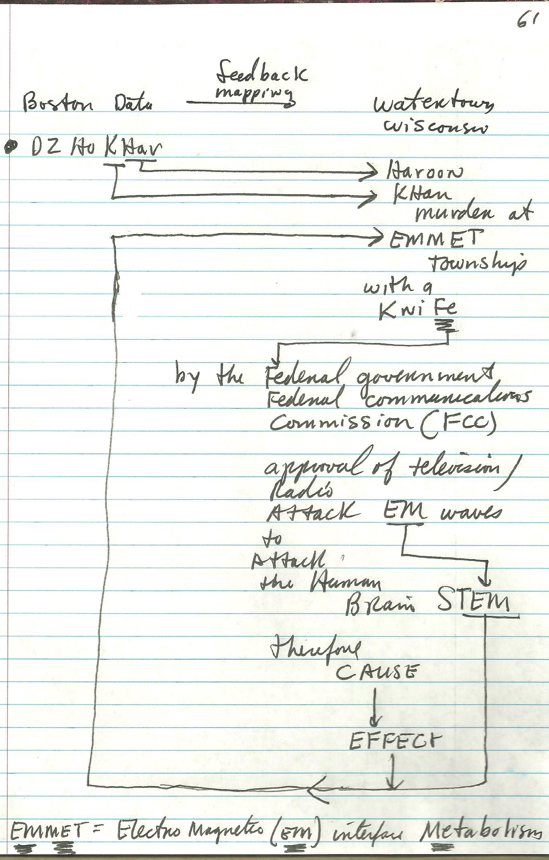 61
feedback
mapping
Boston Data
Watertown
Wisconsin
DZHoKHar
Haroon
KHan
murder at
EMMET
township
with a
KniFe
by the Federal government
Federal communications
Commission (FCC)
approval of television/
Radio
Attack EM waves
to
Attack
the Human
Brain STEM
therefore
CAUSE
EFFECT
EMMET = Electro Magnetic (EM) interface Metabolism